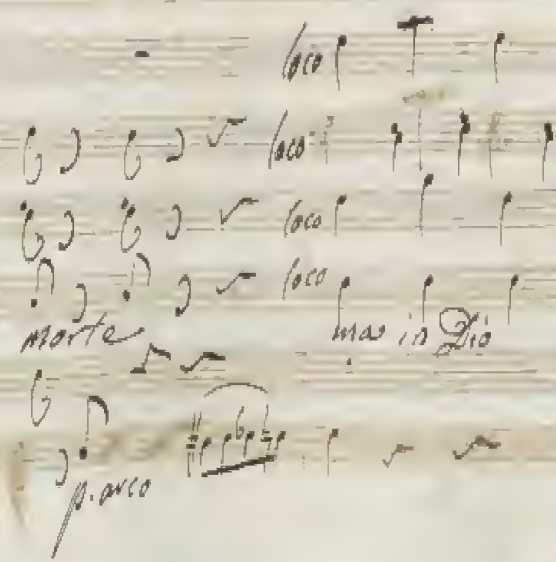 loco
loco
loco
loco
morte mas in Dio
p. arco